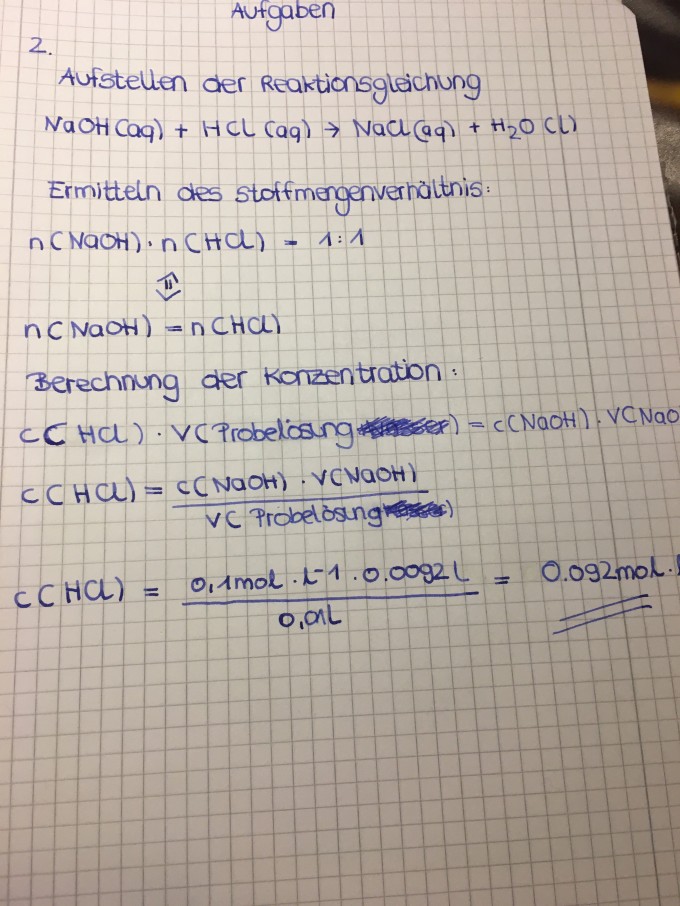 Aufgaben
2.
Aufstellen der Reaktionsgleichung
NaOH(aq) + HCl (aq) → NaCl(aq) + H₂O (l)
Ermitteln des Stoffmengenverhältnis:
n(NaOH) · n(HCl) = 1:1
n(NaOH) = n(HCl)
Berechnung der Konzentration:
c(HCl) · V(Probelösung) = c(NaOH) · V(NaO
c(HCl) = c(NaOH) · V(NaOH)
V(Probelösung)
c(HCl) = 0,1mol · L-1 · 0.0092L = 0.092mol ·
0,01L